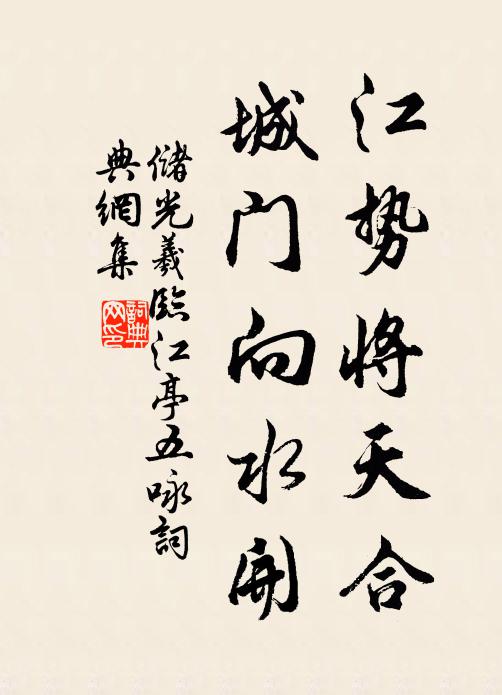 江势将天合
城门向水开
储光羲临江亭五咏词
典网集
词典
网印